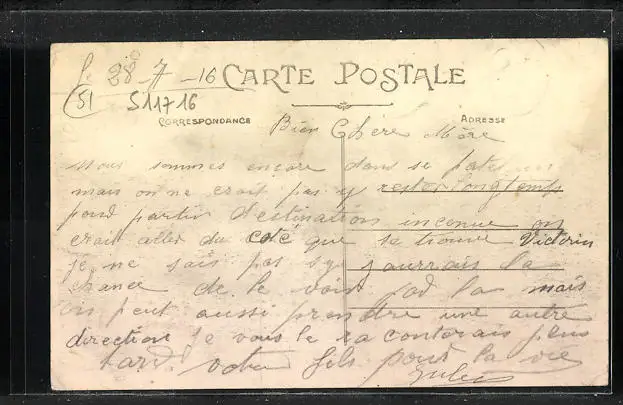 le 28 - 7 - 16 CARTE POSTALE
51 511716
CORRESPONDANCE ADRESSE
Bien Chère Mère
Nous sommes encore dans se
mais on ne crait pas y rester longtemps
pour partir destination inconue on
crait aller du coté que se trouve Victorin
je ne sais pas sy j'aurrais la
chance de le voir par la mais
on peut aussi prendre une autre
direction je vous le racontorais plus
tard. votre fils pour la vie
Jules